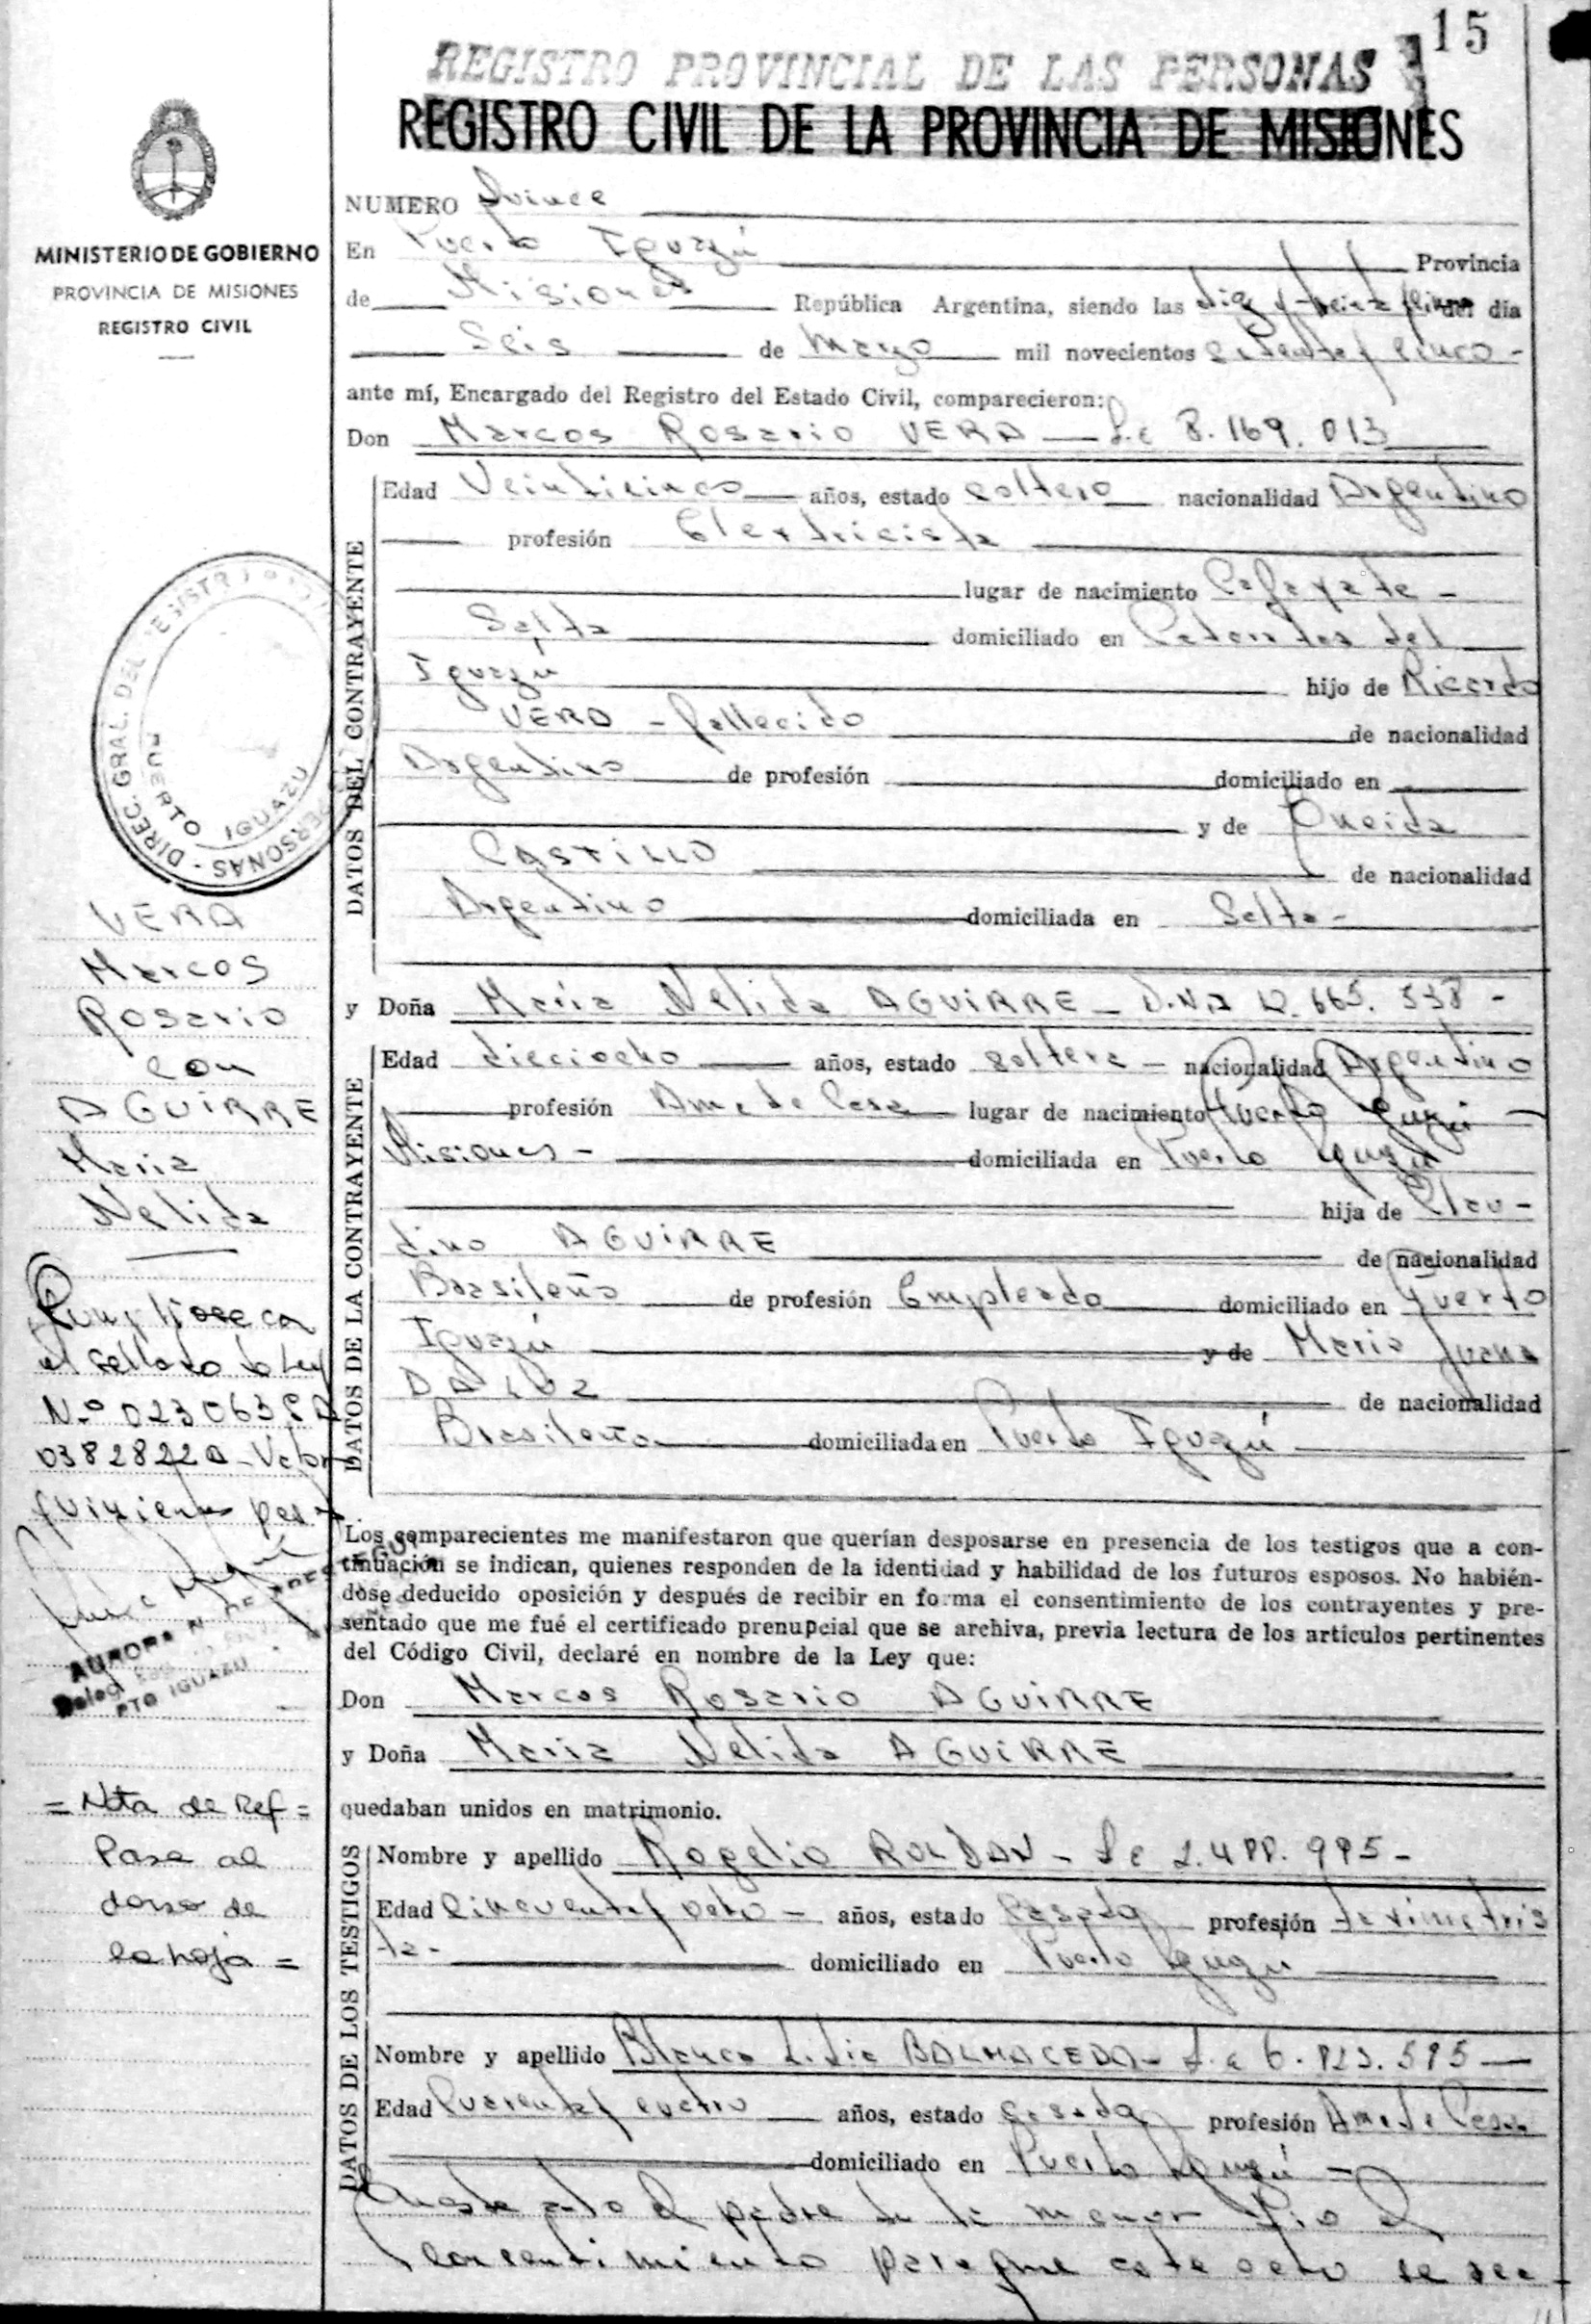 15
REGISTRO PROVINCIAL DE LAS PERSONAS
REGISTRO CIVIL DE LA PROVINCIA DE MISIONES
MINISTERIO DE GOBIERNO
PROVINCIA DE MISIONES
REGISTRO CIVIL
DIREC. GRAL. DEL REGISTRO PERSONAS -
PUERTO IGUAZU
VERA
Marcos
Rosario
con
AGUIRRE
Maria
Nelida
el sellado
Nº 023063
0382822
AURORA N.
PTO IGUAZU
= Nota de Ref =
Pasa al
dorso de
la hoja =
NUMERO Quince
En Puerto Iguazú Provincia
de Misiones República Argentina, siendo las diez y treinta del día
Seis de Marzo mil novecientos setenta y cinco -
ante mí, Encargado del Registro del Estado Civil, comparecieron:
Don Marcos Rosario VERA - L.E 8.169.013
DATOS DEL CONTRAYENTE
Edad Veinticinco años, estado soltero nacionalidad Argentino
profesión Electricista
lugar de nacimiento Cafayate -
Salta domiciliado en Cataratas del
Iguazú hijo de Ricardo
VERA - fallecido de nacionalidad
Argentino de profesión domiciliado en
y de Oneida
CASTILLO de nacionalidad
Argentino domiciliada en Salta -
y Doña Maria Nelida AGUIRRE - D.N.I 12.665.538 -
DATOS DE LA CONTRAYENTE
Edad dieciocho años, estado soltera - nacionalidad Argentino
profesión Ama de Casa lugar de nacimiento Puerto Iguazú -
Misiones - domiciliada en Puerto Iguazú
hija de Clau-
dino AGUIRRE de nacionalidad
Brasileño de profesión Empleado domiciliado en Puerto
Iguazú y de Maria Juana
DA LUZ de nacionalidad
Brasileña domiciliada en Puerto Iguazú
Los comparecientes me manifestaron que querían desposarse en presencia de los testigos que a con-
tinuación se indican, quienes responden de la identidad y habilidad de los futuros esposos. No habién-
dose deducido oposición y después de recibir en forma el consentimiento de los contrayentes y pre-
sentado que me fué el certificado prenupcial que se archiva, previa lectura de los artículos pertinentes
del Código Civil, declaré en nombre de la Ley que:
Don Marcos Rosario AGUIRRE
y Doña Maria Nelida AGUIRRE
quedaban unidos en matrimonio.
DATOS DE LOS TESTIGOS
Nombre y apellido Rogelio ROLDAN -
Edad Cincuenta y ocho - años, estado Casado profesión taximetris
ta - domiciliado en Puerto Iguazú
Nombre y apellido Blanca Lidia BALMACEDA -
Edad Cuarenta y cuatro años, estado Casada profesión Ama de Casa
domiciliado en Puerto Iguazú -
el padre de la menor dio el
consentimiento para que este acto se